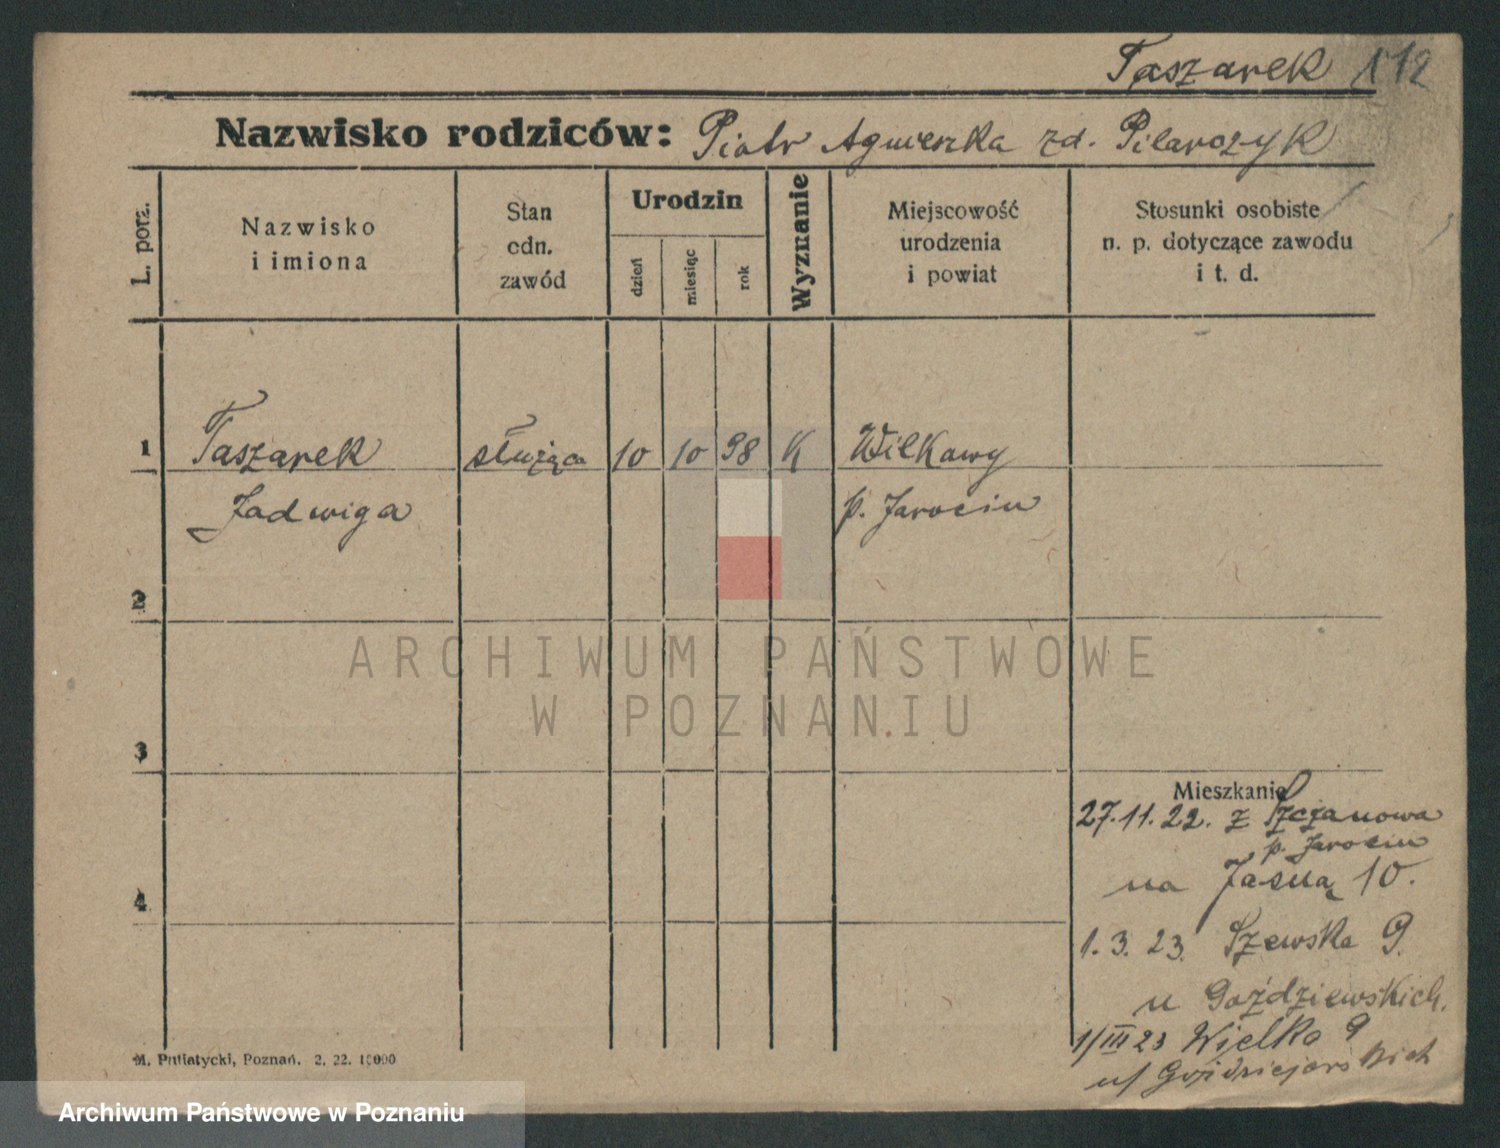 Taszarek 112
Nazwisko rodziców: Piotr Agnieszka zd. Pilarczyk
L. porz.
Nazwisko
i imiona
Stan
cdn.
zawód
Urodzin
dzień
miesiąc
rok
Wyznanie
Miejscowość
urodzenia
i powiat
Stosunki osobiste
n. p. dotyczące zawodu
i t. d.
1 Taszarek służąca 10 10 98 K Wilkawy
Jadwiga p. Jarocin
2
ARCHIWUM PAŃSTWOWE
W POZNANIU
3
Mieszkanie
27.11.22. z Szczanowa
p. Jarocin
na Jasną 10.
4
1.3.23. Szewska 9.
u Goździewskich.
1/III 23 Wielka 9
u/
M. Putiatycki, Poznań. 2. 22. 10000
Archiwum Państwowe w Poznaniu